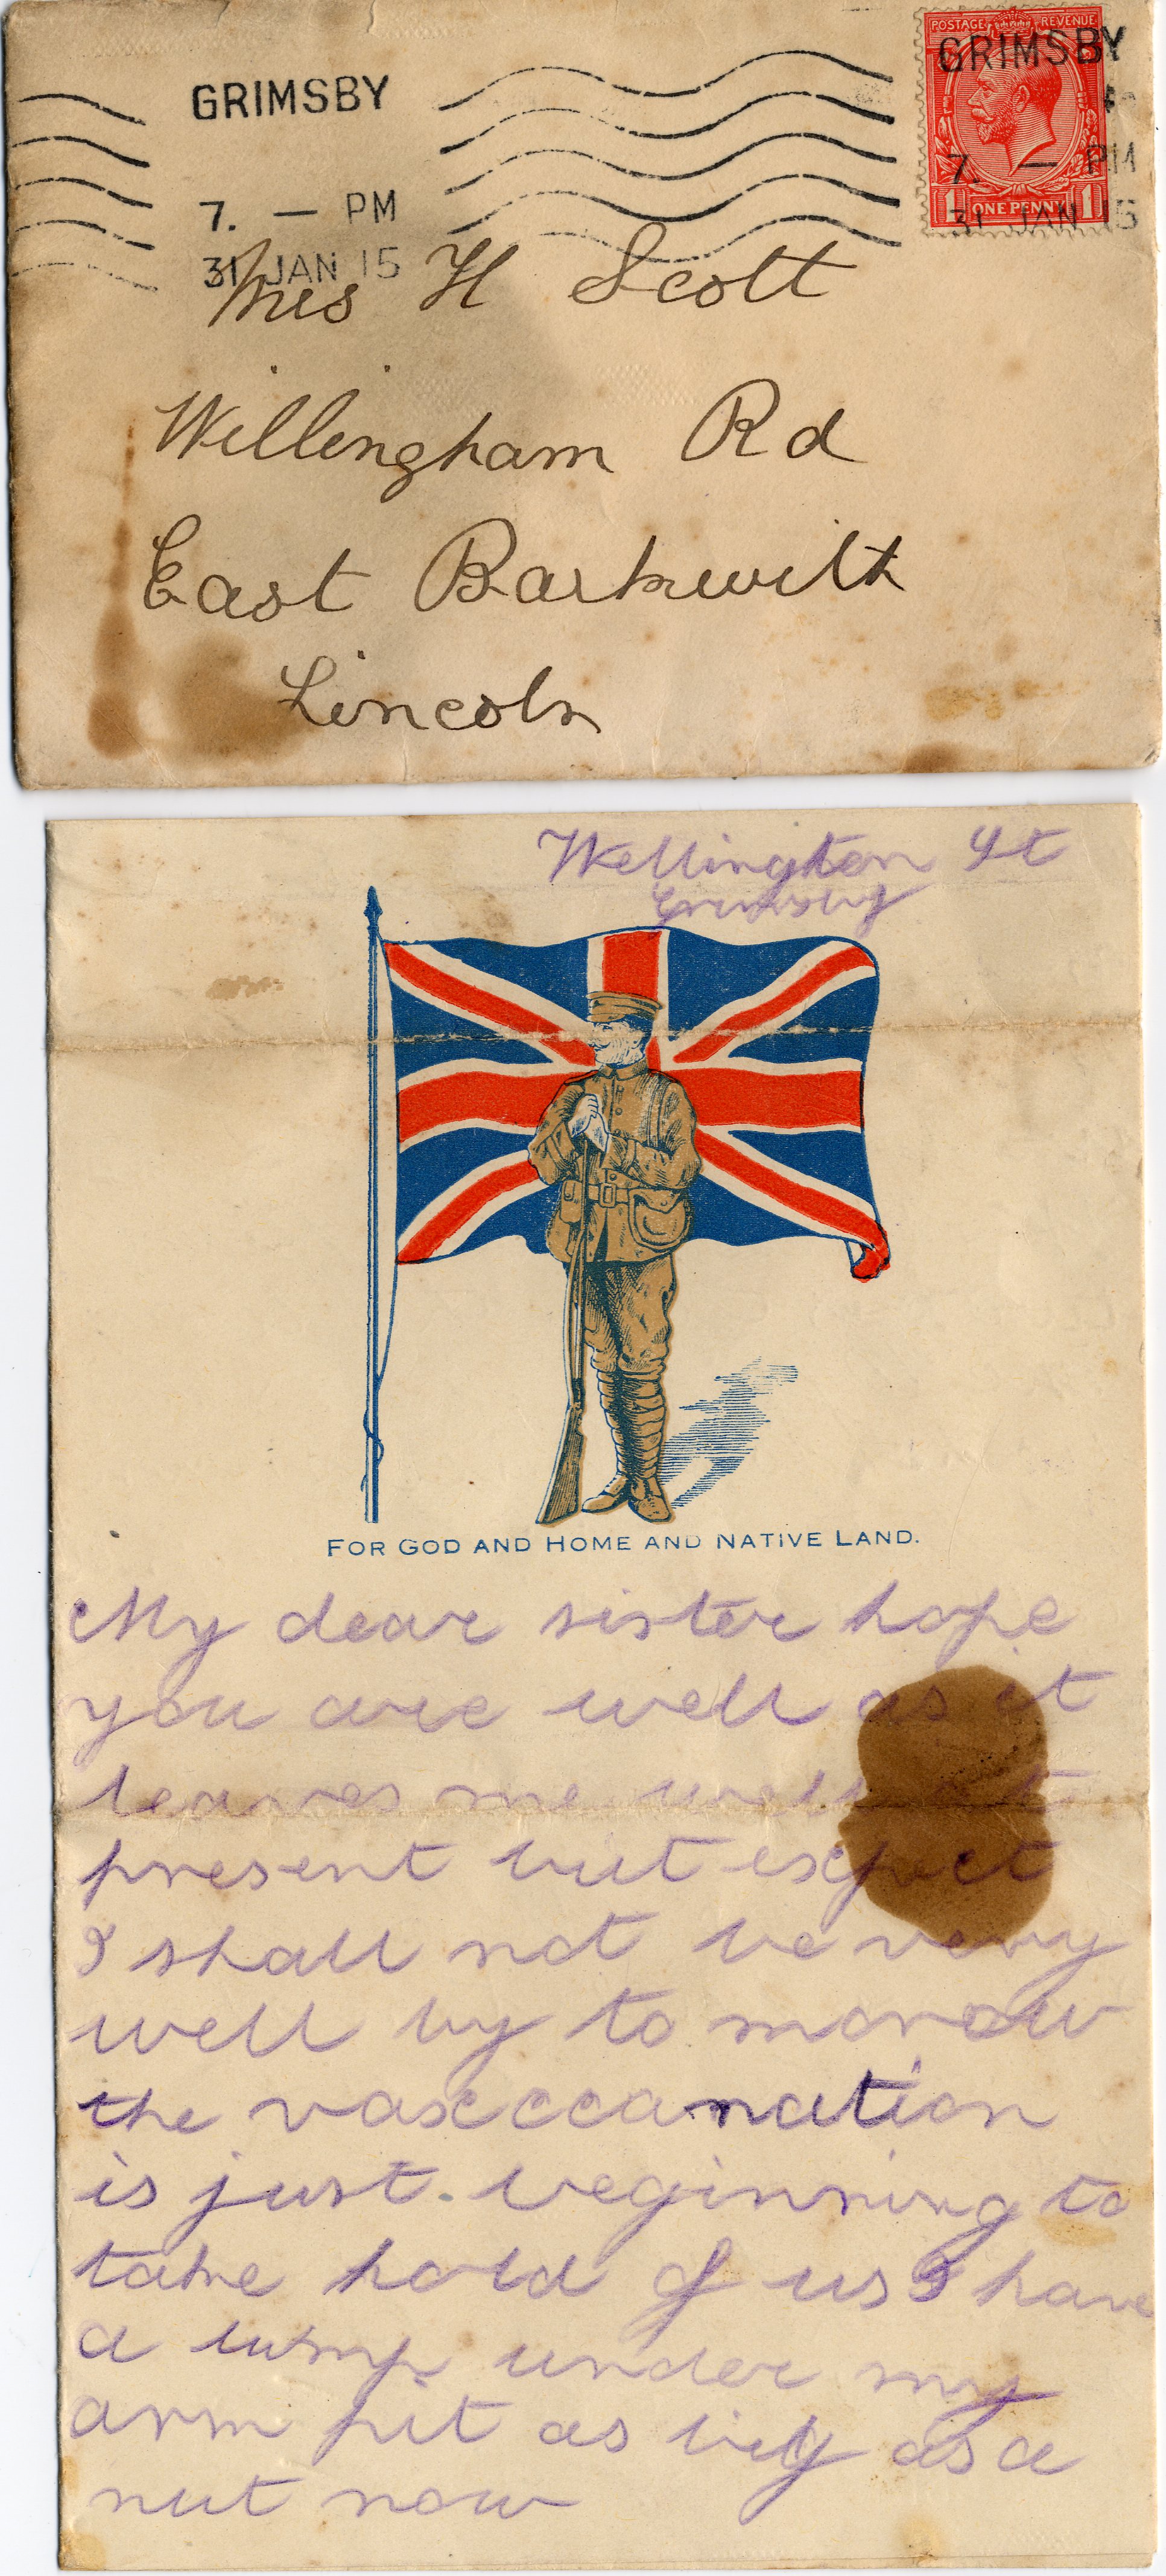 GRIMSBY
7. — PM
31 JAN 15
POSTAGE REVENUE
GRIMSBY
7. — PM
31 JAN 15
1 ONE PENNY 1
Mrs H Scott
Willingham Rd
East Barkwith
Lincoln
Wellington St
Grimsby
FOR GOD AND HOME AND NATIVE LAND.
My dear sister hope
you are well as it
leaves me well at
present but expect
I shall not be very
well by to morow
the vaxcccanation
is just beginning to
take hold of us I have
a lump under my
arm pit as big as a
nut now